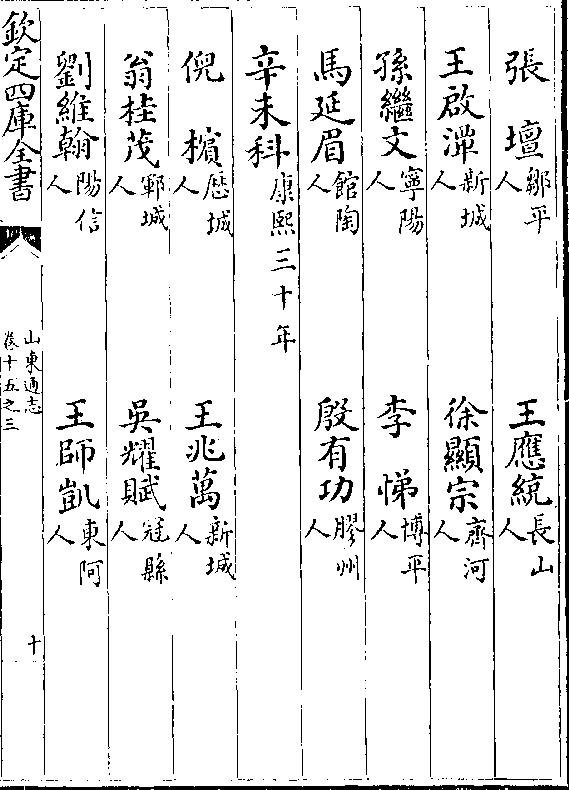 張　壇鄒平人　王應統長山人
王啟𣸣新城人　徐顯宗齊河人
孫繼文寧陽人　李　悌博平人
馬延眉館陶人　殷有功膠州人
辛未科康熙三十年
倪　檳歷城人　王兆萬新城人
翁桂茂鄆城人　吳耀賦冠縣人
劉維翰陽信人　王師凱東阿人
欽定四庫全書
山東通志
卷十五之三
十